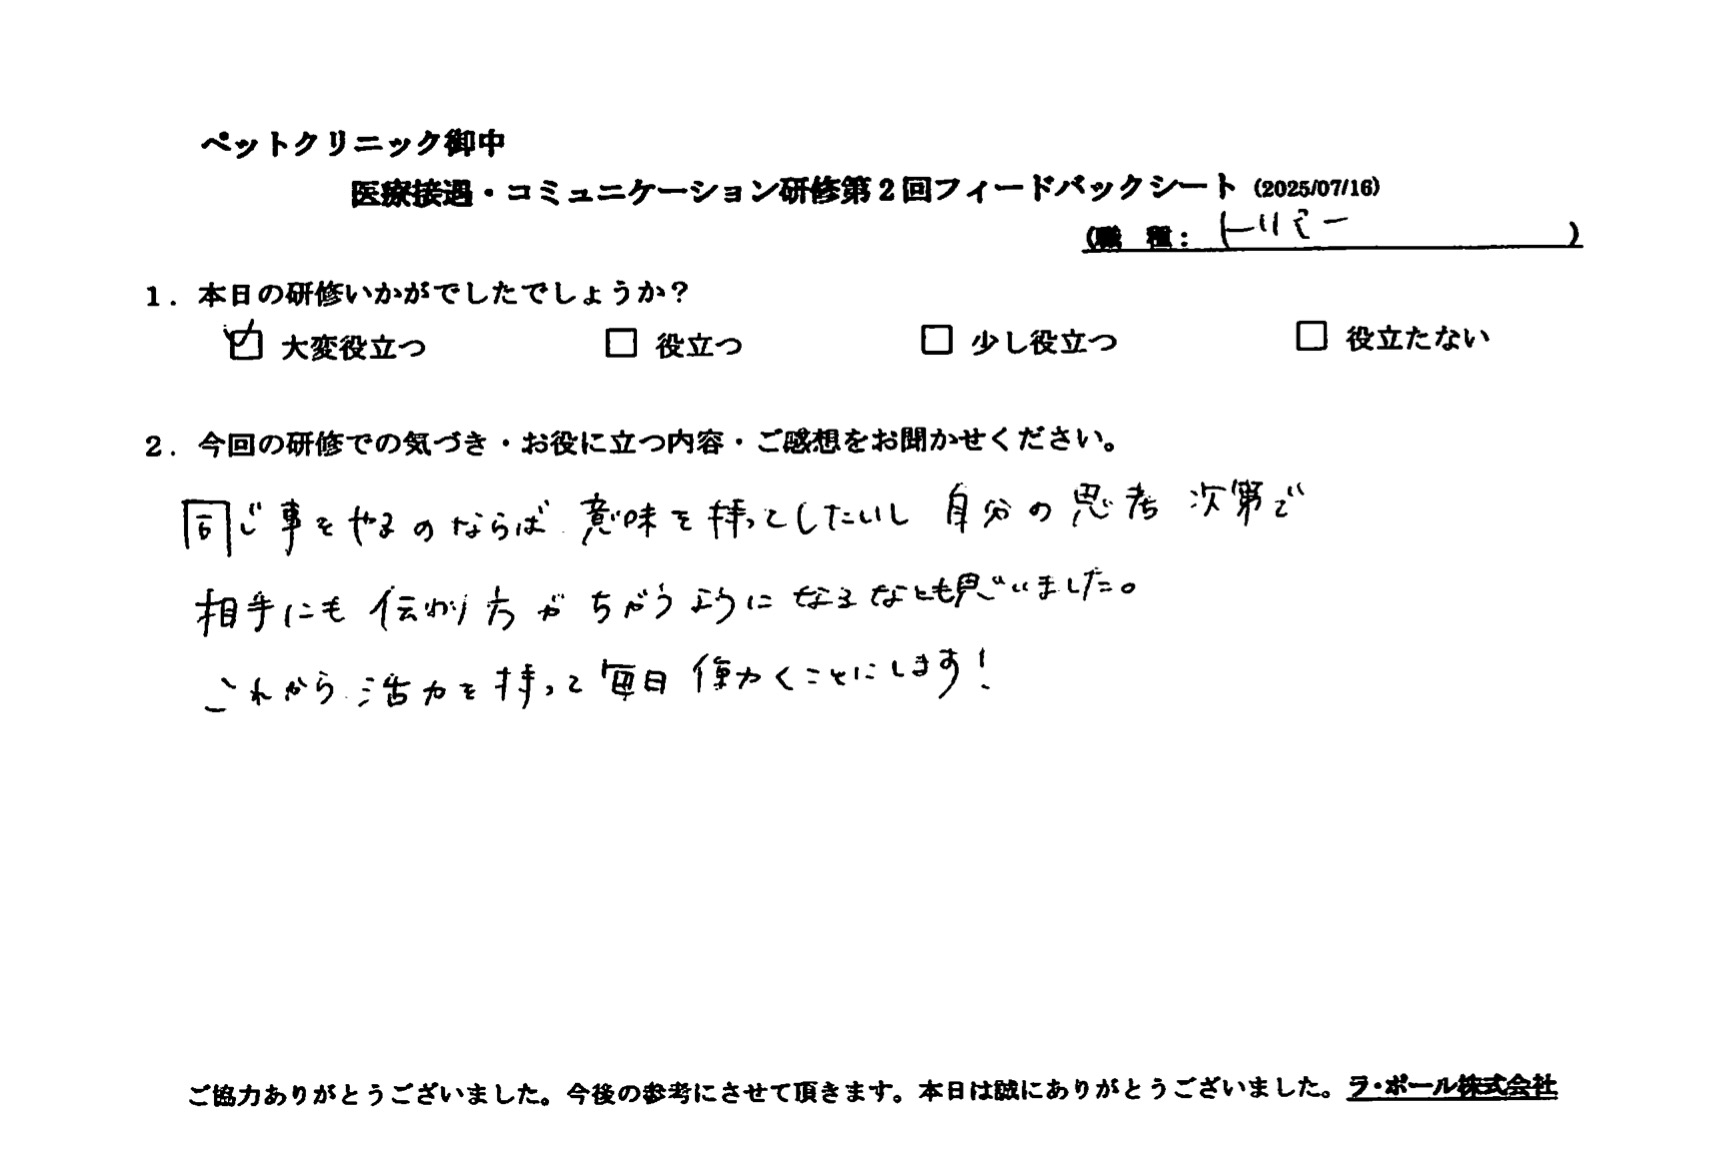 ペットクリニック御中
医療接遇・コミュニケーション研修第2回フィードバックシート (2025/07/16)
(職 種: トリミー )
1. 本日の研修いかがでしたでしょうか?
☑ 大変役立つ □ 役立つ □ 少し役立つ □ 役立たない
2. 今回の研修での気づき・お役に立つ内容・ご感想をお聞かせください。
同じ事をやるのならば 意味を持ってしたいし 自分の思考 次第で
相手にも 伝わり方が ちがうように なるなとも思いました。
これから 活力を持って 毎日 働くことにします!
ご協力ありがとうございました。今後の参考にさせて頂きます。本日は誠にありがとうございました。ラ・ポール株式会社